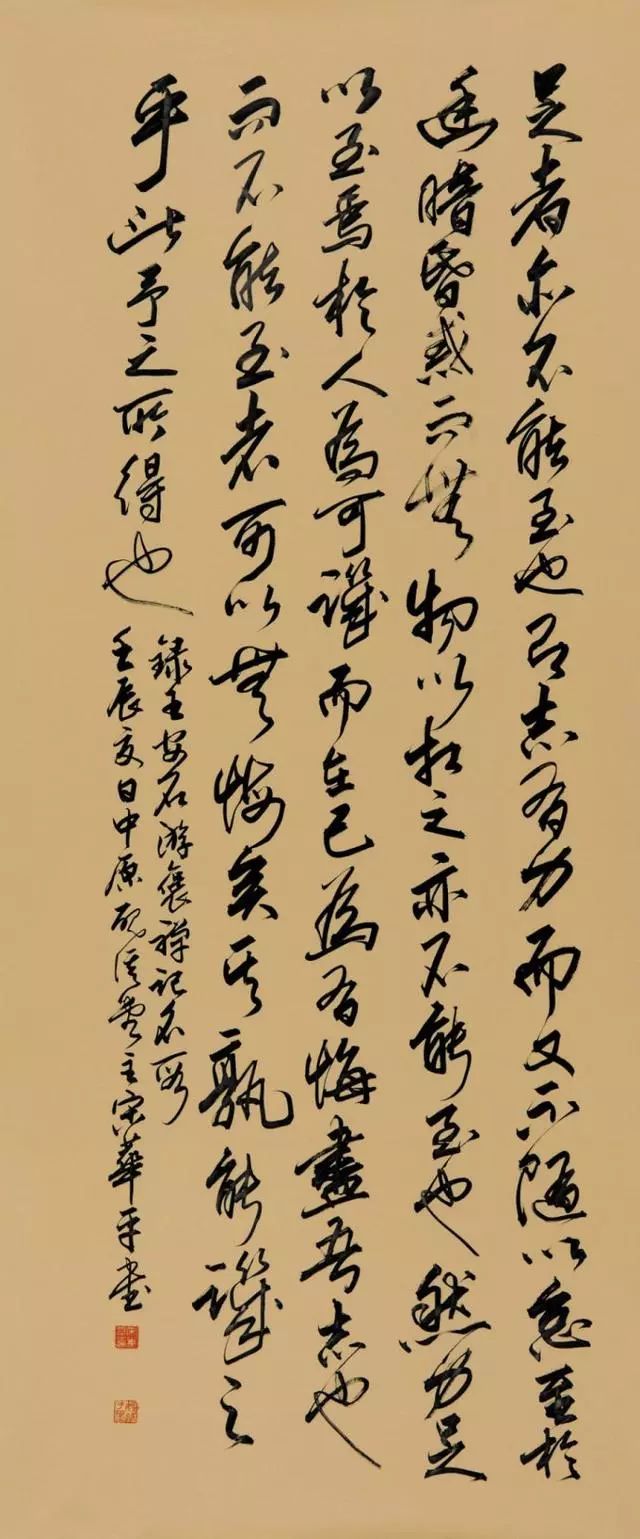 足者亦不能至也志有力而又不隨以怠至於
幽暗昏惑而無物以相之亦不能至也然力足
以至焉於人為可譏而在己為有悔盡吾志也
而不能至者可以無悔矣其孰能譏之
乎此予之所得也
錄王安石游褒禪記名段
壬辰夏日中原主宋華平書